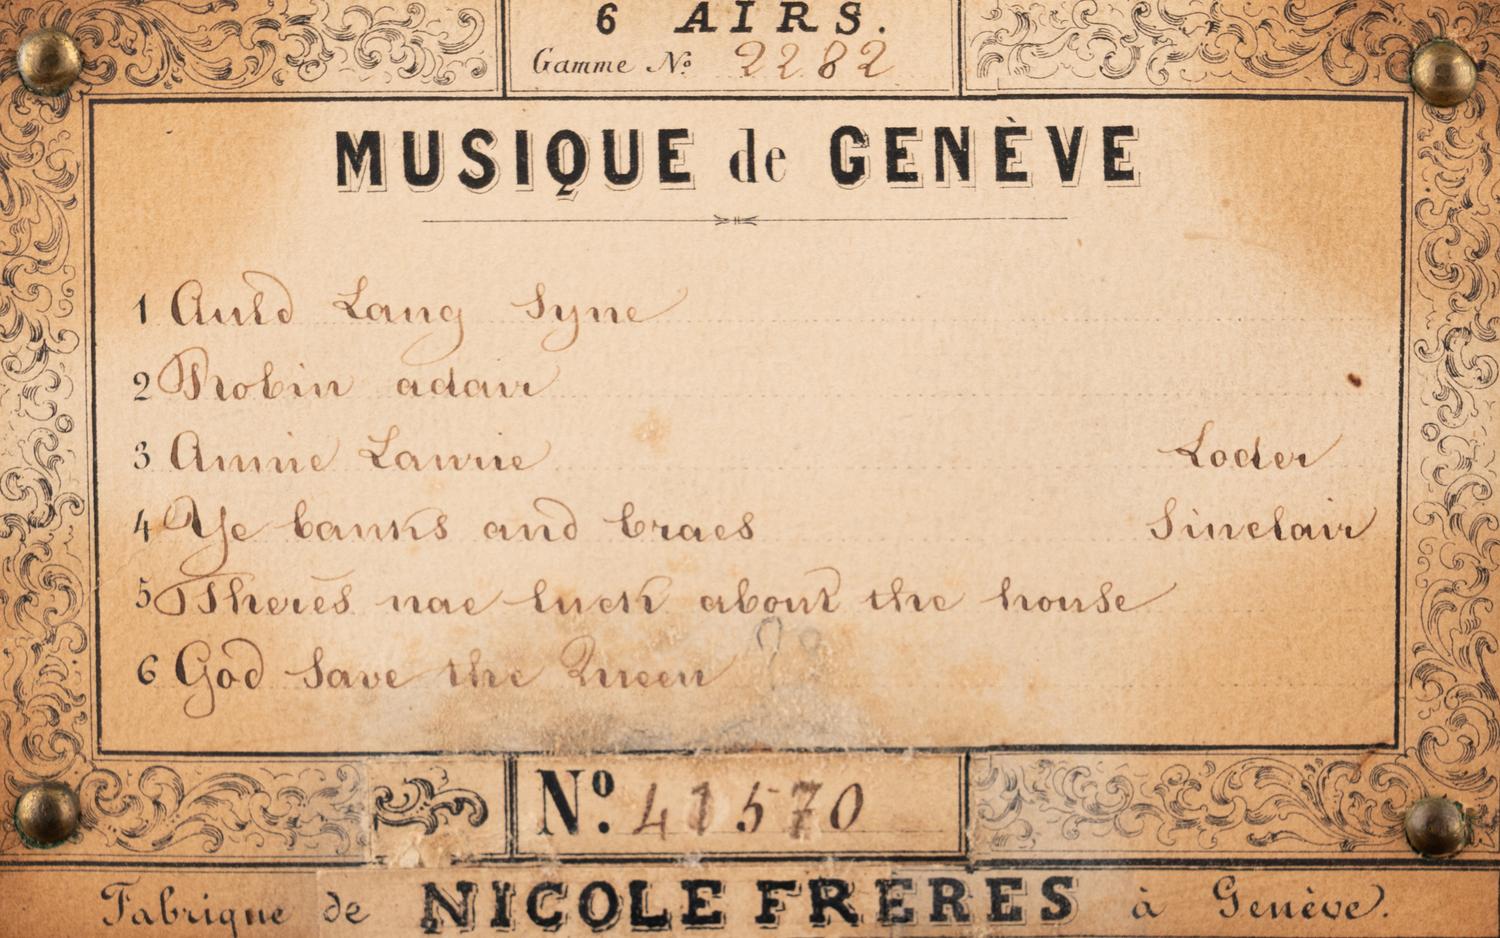 6 AIRS.
Gamme No. 2282
MUSIQUE de GENÈVE
1 Auld Lang Syne
2 Robin adair
3 Annie Laurie Loder
4 Ye banks and braes Sinclair
5 Theres nae luck about the house
6 God save the Queen
No. 41570
Fabrique de NICOLE FRERES à Genève.